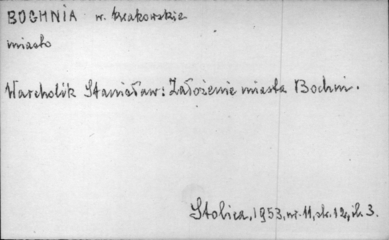 BOCHNIA w. krakowskie
miasto
Warcholik Stanisław: Założenie miasta Bochni.
Stolica, 1953, nr. 11, str. 12, il. 3.